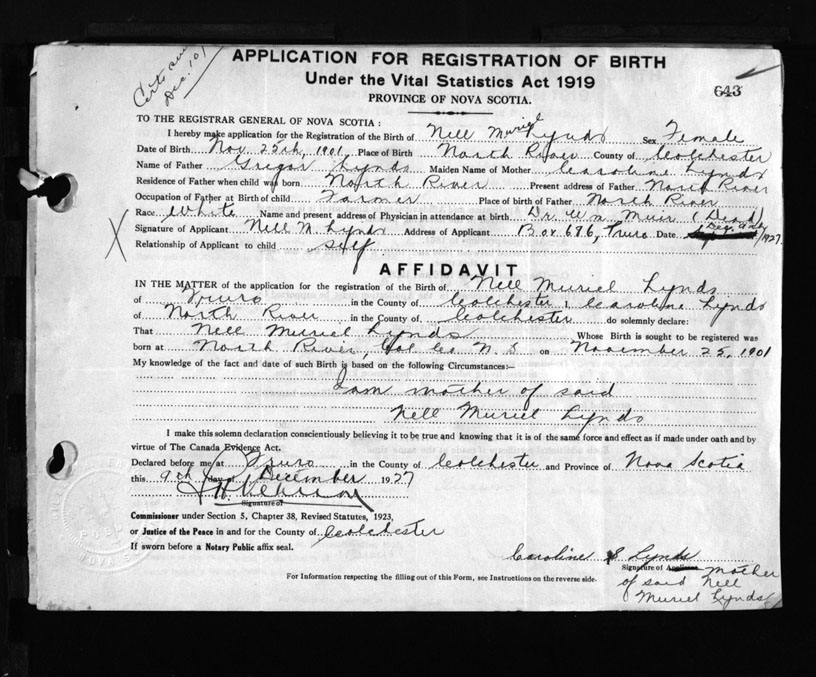 Dec. 10/
APPLICATION FOR REGISTRATION OF BIRTH
Under the Vital Statistics Act 1919
643
PROVINCE OF NOVA SCOTIA.
TO THE REGISTRAR GENERAL OF NOVA SCOTIA :
I hereby make application for the Registration of the Birth of Nell Muriel Lynds Sex Female
Date of Birth Nov. 25th, 1901 Place of Birth North River County of Colchester
Name of Father Gregor Lynds Maiden Name of Mother Caroline Lynds
Residence of Father when child was born North River Present address of Father North River
Occupation of Father at Birth of child Farmer Place of birth of Father North River
Race White Name and present address of Physician in attendance at birth Dr. Wm Muir (Dead)
Signature of Applicant Nell M. Lynds Address of Applicant Box 686, Truro Date Dec. 9th/1927.
Relationship of Applicant to child self
AFFIDAVIT
IN THE MATTER of the application for the registration of the Birth of Nell Muriel Lynds
of Truro in the County of Colchester, Caroline Lynds
of North River in the County of Colchester do solemnly declare:
That Nell Muriel Lynds Whose Birth is sought to be registered was
born at North River, Col Co N. S on November 25, 1901
My knowledge of the fact and date of such Birth is based on the following Circumstances:—
I am mother of said
Nell Muriel Lynds
I make this solemn declaration conscientiously believing it to be true and knowing that it is of the same force and effect as if made under oath and by
virtue of The Canada Evidence Act.
Declared before me at Truro in the County of Colchester and Province of Nova Scotia
this 9th day of December 1927
Signature of
Commissioner under Section 5, Chapter 38, Revised Statutes, 1923,
or Justice of the Peace in and for the County of Colchester
If sworn before a Notary Public affix seal.
Caroline S Lynds
Signature of Applicant mother
For Information respecting the filling out of this Form, see Instructions on the reverse side.
of said Nell
Muriel Lynds